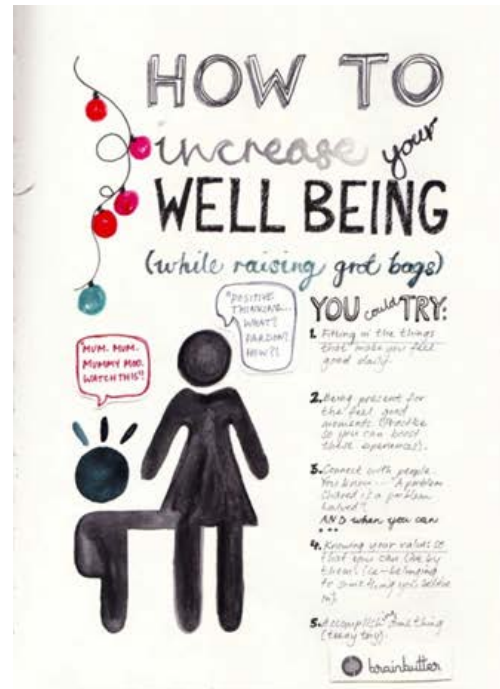 HOW TO
increase your
WELL BEING
(while raising grot bags)
"POSITIVE
THINKING...
WHAT?
PARDON?
HOW?!
YOU could TRY:
"MUM. MUM.
MUMMY MOO.
WATCH THIS"!
1. Fitting in the things
that make you feel
good daily.
2. Being present for
the feel good
moments (
so you can boost
these experiences).
3. Connect with people.
You know... "A problem
shared is a problem
halved"
AND when you can
...
4. Knowing your values so
that you can live by
them (ie-belonging
to something you believe
in).
5. Accomplishing something
(teeny tiny).
brainbutter